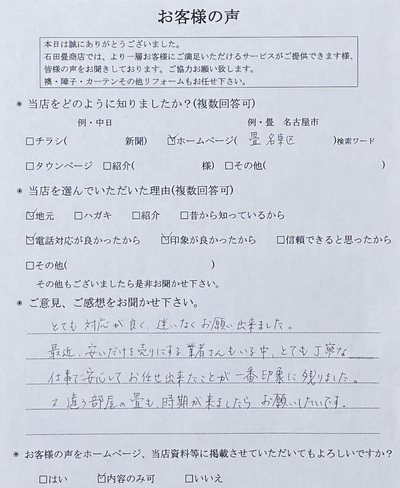 お客様の声
本日は誠にありがとうございました。
石田畳商店では、より一層お客様にご満足いただけるサービスがご提供できます様、
皆様の声をお聞きしております。ご協力お願い致します。
襖・障子・カーテンその他リフォームもお任せ下さい。
◉ 当店をどのように知りましたか?(複数回答可)
例・中日 例・畳 名古屋市
□チラシ( 新聞) ☑ホームページ( 畳 名東区 )検索ワード
□タウンページ □紹介( 様) □その他( )
◉ 当店を選んでいただいた理由(複数回答可)
☑地元 □ハガキ □紹介 □昔から知っているから
☑電話対応が良かったから ☑印象が良かったから □信頼できると思ったから
□その他( )
その他もございましたら是非お聞かせ下さい。
◉ ご意見、ご感想をお聞かせ下さい。
とても対応が良く、迷いなくお願い出来ました。
最近、安いだけを売りにする業者さんもいる中、とても丁寧な
仕事で安心してお任せ出来たことが一番印象に残りました。
又違う部屋の畳も、時期が来ましたらお願いしたいです。
◉ お客様の声をホームページ、当店資料等に掲載させていただいてもよろしいですか?
□はい ☑内容のみ可 □いいえ